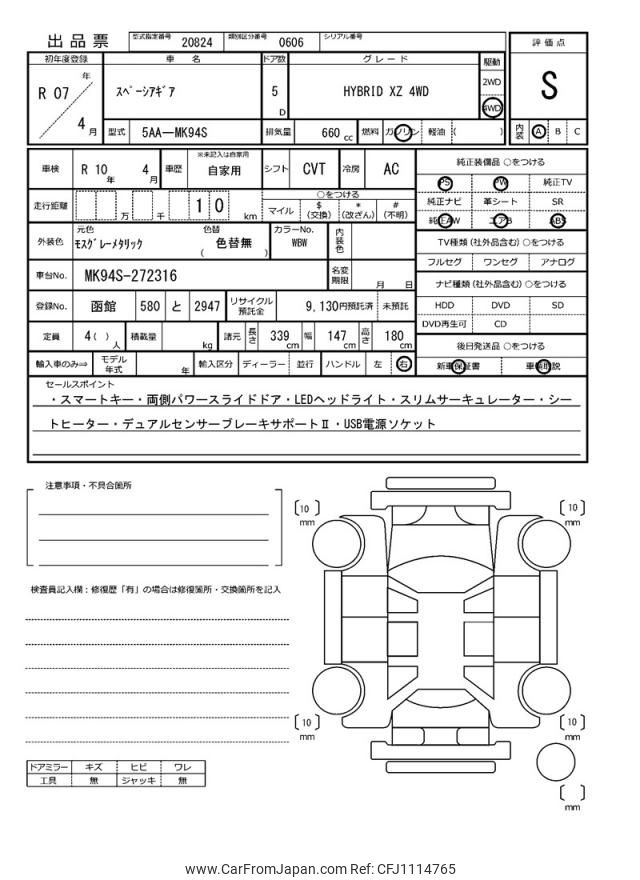 出品票 型式指定番号 20824 類別区分番号 0606 シリアル番号
初年度登録 車名 ドア数 グレード 駆動 評価点
R 07 年 4 月 スペーシアギア 5 D HYBRID XZ 4WD 2WD 4WD S
型式 5AA-MK94S 排気量 660 cc 燃料 ガソリン 軽油 ( ) 内装 A B C
車検 R 10 年 4 月 車歴 ※未記入は自家用 自家用 シフト CVT 冷房 AC 純正装備品 ○をつける
PS PW 純正TV
走行距離 万 千 1 0 km ○をつける マイル $ (交換) * (改ざん) # (不明) 純正ナビ 革シート SR
純正AW エアB ABS
外装色 元色 モスグレーメタリック 色替 ( 色替無 ) カラーNo. WBW 内装色 TV種類 (社外品含む) ○をつける
フルセグ ワンセグ アナログ
車台No. MK94S-272316 名変期限 月 日 ナビ種類 (社外品含む) ○をつける
登録No. 函館 580 と 2947 リサイクル預託金 9,130円預託済 未預託 HDD DVD SD
DVD再生可 CD
定員 4( ) 人 積載量 kg 諸元 長さ 339 cm 幅 147 cm 高さ 180 cm 後日発送品 ○をつける
輸入車のみ⇒ モデル年式 年 輸入区分 ディーラー 並行 ハンドル 左 右 新車保証書 車輌取説
セールスポイント
・スマートキー・両側パワースライドドア・LEDヘッドライト・スリムサーキュレーター・シー
トヒーター・デュアルセンサーブレーキサポートⅡ・USB電源ソケット
注意事項・不具合箇所
〔10〕mm 〔10〕mm
検査員記入欄:修復歴「有」の場合は修復箇所・交換箇所を記入
〔10〕mm 〔10〕mm
ドアミラー キズ ヒビ ワレ
工具 無 ジャッキ 無
〔 〕mm
www.CarFromJapan.com Ref: CFJ1114765